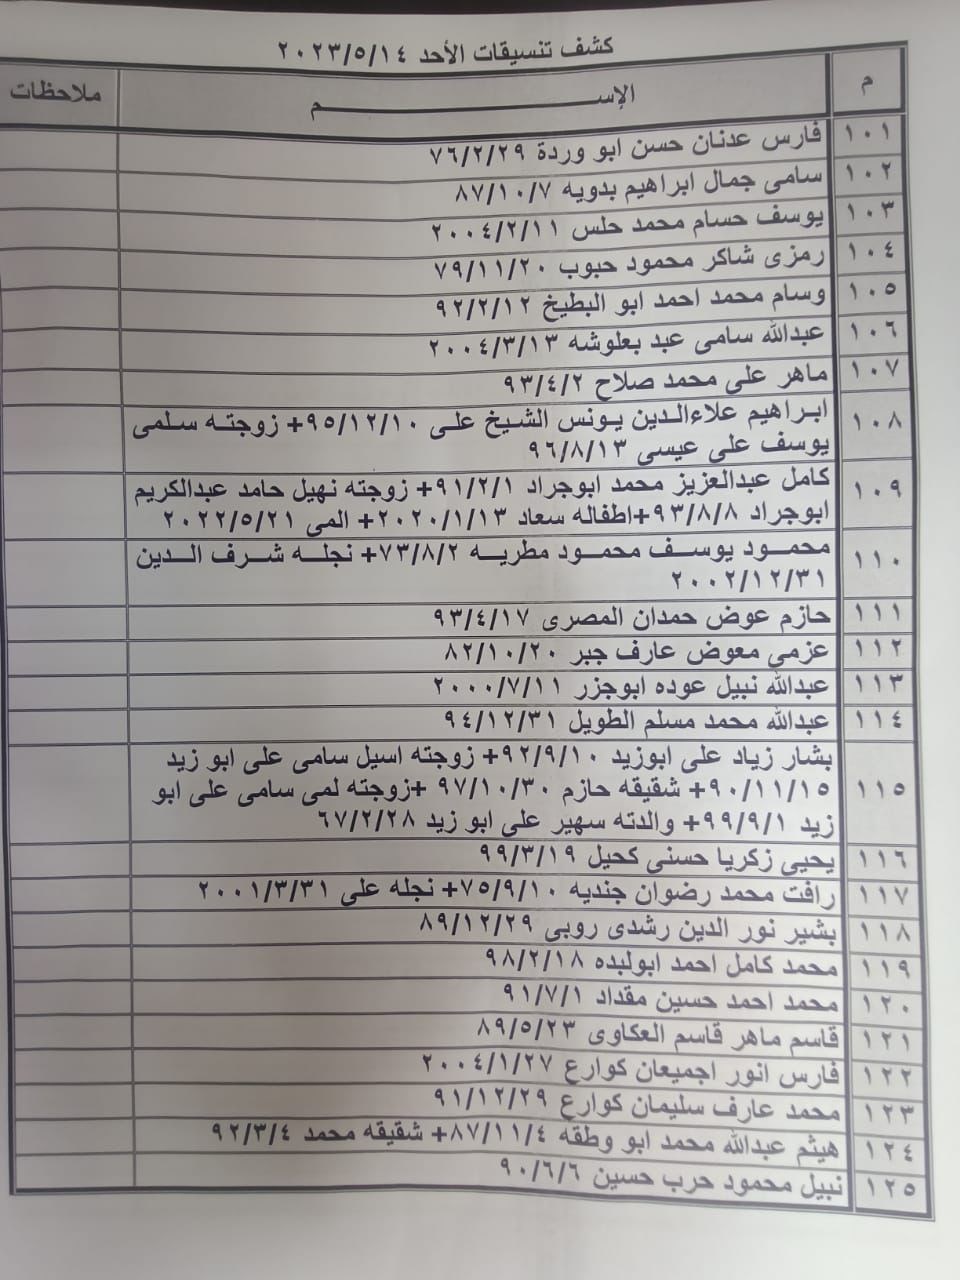 كشف تنسيقات الأحد ٢٠٢٣/٥/١٤
م الإســـــــــــــم ملاحظات
١٠١ فارس عدنان حسن ابو وردة ٧٦/٢/٢٩
١٠٢ سامى جمال ابراهيم بدويه ٨٧/١٠/٧
١٠٣ يوسف حسام محمد حلس ٢٠٠٤/٢/١١
١٠٤ رمزى شاكر محمود حبوب ٧٩/١١/٢٠
١٠٥ وسام محمد احمد ابو البطيخ ٩٢/٢/١٢
١٠٦ عبدالله سامى عبد بعلوشه ٢٠٠٤/٣/١٣
١٠٧ ماهر على محمد صلاح ٩٣/٤/٢
١٠٨ ابراهيم علاءالدين يونس الشيخ على ٩٥/١٢/١٠+ زوجته سلمى
يوسف على عيسى ٩٦/٨/١٣
١٠٩ كامل عبدالعزيز محمد ابوجراد ٩١/٢/١+ زوجته نهيل حامد عبدالكريم
ابوجراد ٩٣/٨/٨+اطفاله سعاد ٢٠٢٠/١/١٣+ المى ٢٠٢٢/٥/٢١
١١٠ محمود يوسف محمود مطريه ٧٣/٨/٢+ نجله شرف الدين
٢٠٠٢/١٢/٣١
١١١ حازم عوض حمدان المصرى ٩٣/٤/١٧
١١٢ عزمى معوض عارف جبر ٨٢/١٠/٢٠
١١٣ عبدالله نبيل عوده ابوجزر ٢٠٠٠/٧/١١
١١٤ عبدالله محمد مسلم الطويل ٩٤/١٢/٣١
١١٥ بشار زياد على ابوزيد ٩٢/٩/١٠+ زوجته اسيل سامى على ابو زيد
٩٠/١١/١٥+ شقيقه حازم ٩٧/١٠/٣٠ +زوجته لمى سامى على ابو
زيد ٩٩/٩/١+ والدته سهير على ابو زيد ٦٧/٢/٢٨
١١٦ يحيى زكريا حسنى كحيل ٩٩/٣/١٩
١١٧ رافت محمد رضوان جنديه ٧٥/٩/١٠+ نجله على ٢٠٠١/٣/٣١
١١٨ بشير نور الدين رشدى روبى ٨٩/١٢/٢٩
١١٩ محمد كامل احمد ابولبده ٩٨/٢/١٨
١٢٠ محمد احمد حسين مقداد ٩١/٧/١
١٢١ قاسم ماهر قاسم العكاوى ٨٩/٥/٢٣
١٢٢ فارس انور اجميعان كوارع ٢٠٠٤/١/٢٧
١٢٣ محمد عارف سليمان كوارع ٩١/١٢/٢٩
١٢٤ هيثم عبدالله محمد ابو وطفه ٨٧/١١/٤+ شقيقه محمد ٩٢/٣/٤
١٢٥ نبيل محمود حرب حسين ٩٠/٦/٦